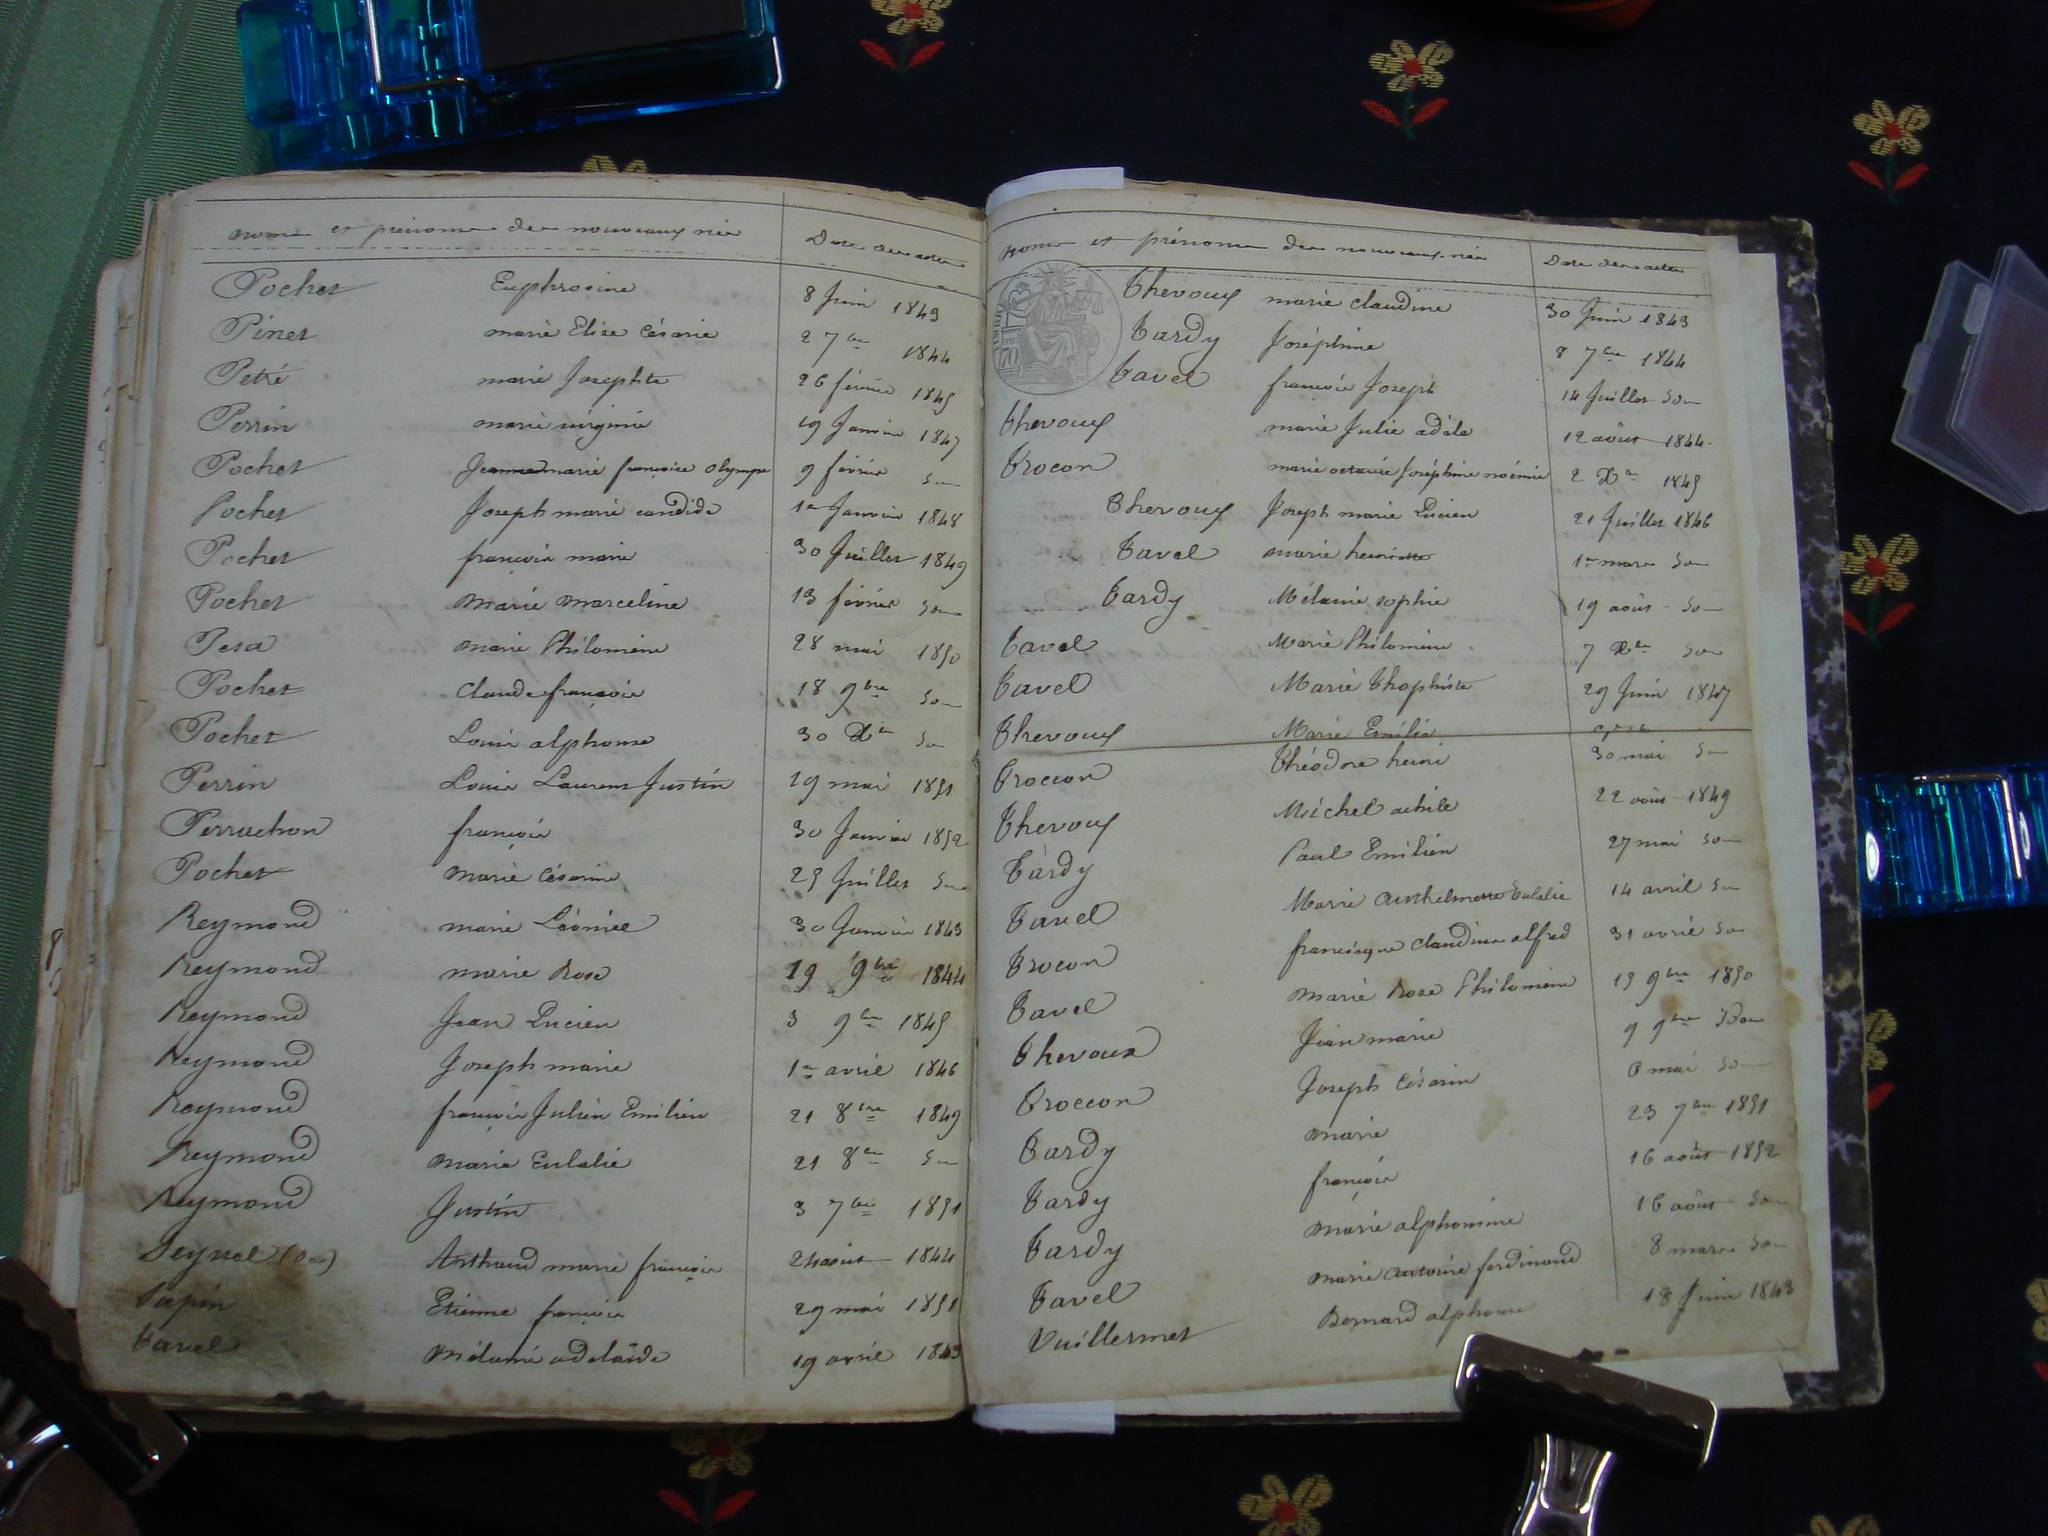 noms et prénoms des nouveaux nés Date des actes
Pochet Euphrosine 8 Juin 1843
Pinet marie Elise Césarie 2 7bre 1844
Petré marie Josephte 26 février 1845
Perrin marie virginie 19 Janvier 1847
Pochet Jeanne marie françoise olympe 9 février
Pochet Joseph marie candide 1er Janvier 1848
Pochet françois marie 30 Juillet 1849
Pochet marie marceline 13 février
Pesa marie Philomène 28 mai 1850
Pochet Claude françois 18 9bre
Pochet Louis alphonse 30 Xbre
Perrin Louis Laurent Justin 29 mai 1851
Perrachon françois 30 Janvier 1852
Pochet marie Césarine 25 Juillet
Reymond marie Léonice 30 Janvier 1843
Reymond marie Rose 19 9bre 1844
Reymond Jean Lucien 3 9bre 1845
Reymond Joseph marie 1er avril 1846
Reymond françois Julien Emilien 21 8bre 1849
Reymond marie Eulalie 21 8bre
Reymond Justin 3 7bre 1851
Seyssel Arthaud marie françois août 1844
Sapin Etienne françois 29 mai 1851
Tavel mélanie adelaïde 19 avril 1843
noms et prénoms des nouveaux nés Date des actes
Thevoux marie claudine 30 Juin 1843
Tardy Joséphine 8 7bre 1844
Tavel françois Joseph 14 Juillet
Thevoux marie Julie adèle 12 août 1844
Trocon marie octavie Joséphine noémie 2 Xbre 1845
Thevoux Joseph marie Lucien 21 Juillet 1846
Tavel marie henriette 1er mars
Tardy Mélanie sophie 19 août
Tavel Marie Philomène 7 Xbre
Tavel Marie Thophiste 29 Juin 1847
Thevoux Marie Emilie
Troccon Théodore henri 30 mai
Thevoux Michel achile 22 août 1849
Tardy Paul Emilien 27 mai
Tavel Marie Anthelmette Eulalie 14 avril
Trocon francisque claudius alfred 31 avril
Tavel marie Rose Philomène 15 9bre 1850
Thevoux Jean marie 9 9bre
Troccon Joseph Césarin mai
Tardy marie 23 7bre 1851
Tardy françois 16 août 1852
Tardy marie alphonsine 16 août
Tavel marie antoine ferdinand 8 mars
Vuillermet Bernard alphonse 18 Juin 1843